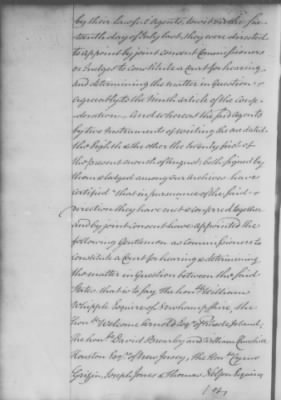 by their lawful Agents, to wit on the six-
teenth day of July last, they were directed
to appoint by joint consent Commissioners
or Judges to constitute a Court for hearing
and determining the matter in Question
agreeably to the Ninth article of the Confe-
deration. And whereas the said agents
by two Instruments of writing the one dated
the Eighth & the other the twenty third of
the present month of August, both signed by
them & lodged among our Archives have
certified that in pursuance of the said
direction they have met & conferred together
and by joint consent have appointed the
following Gentlemen as Commissioners to
constitute a Court for hearing & determining
the matter in Question between the said
States, that is to say, the honble. William
Whipple Esquire of New hampshire, the
Honble. Welcome Arnold Esqr. of Rhode Island,
The honble. David Brearley and William Churchill
Houston Esqrs. of New Jersey, The Honble. Cyrus
Griffin, Joseph Jones & Thomas Nelson Esquires